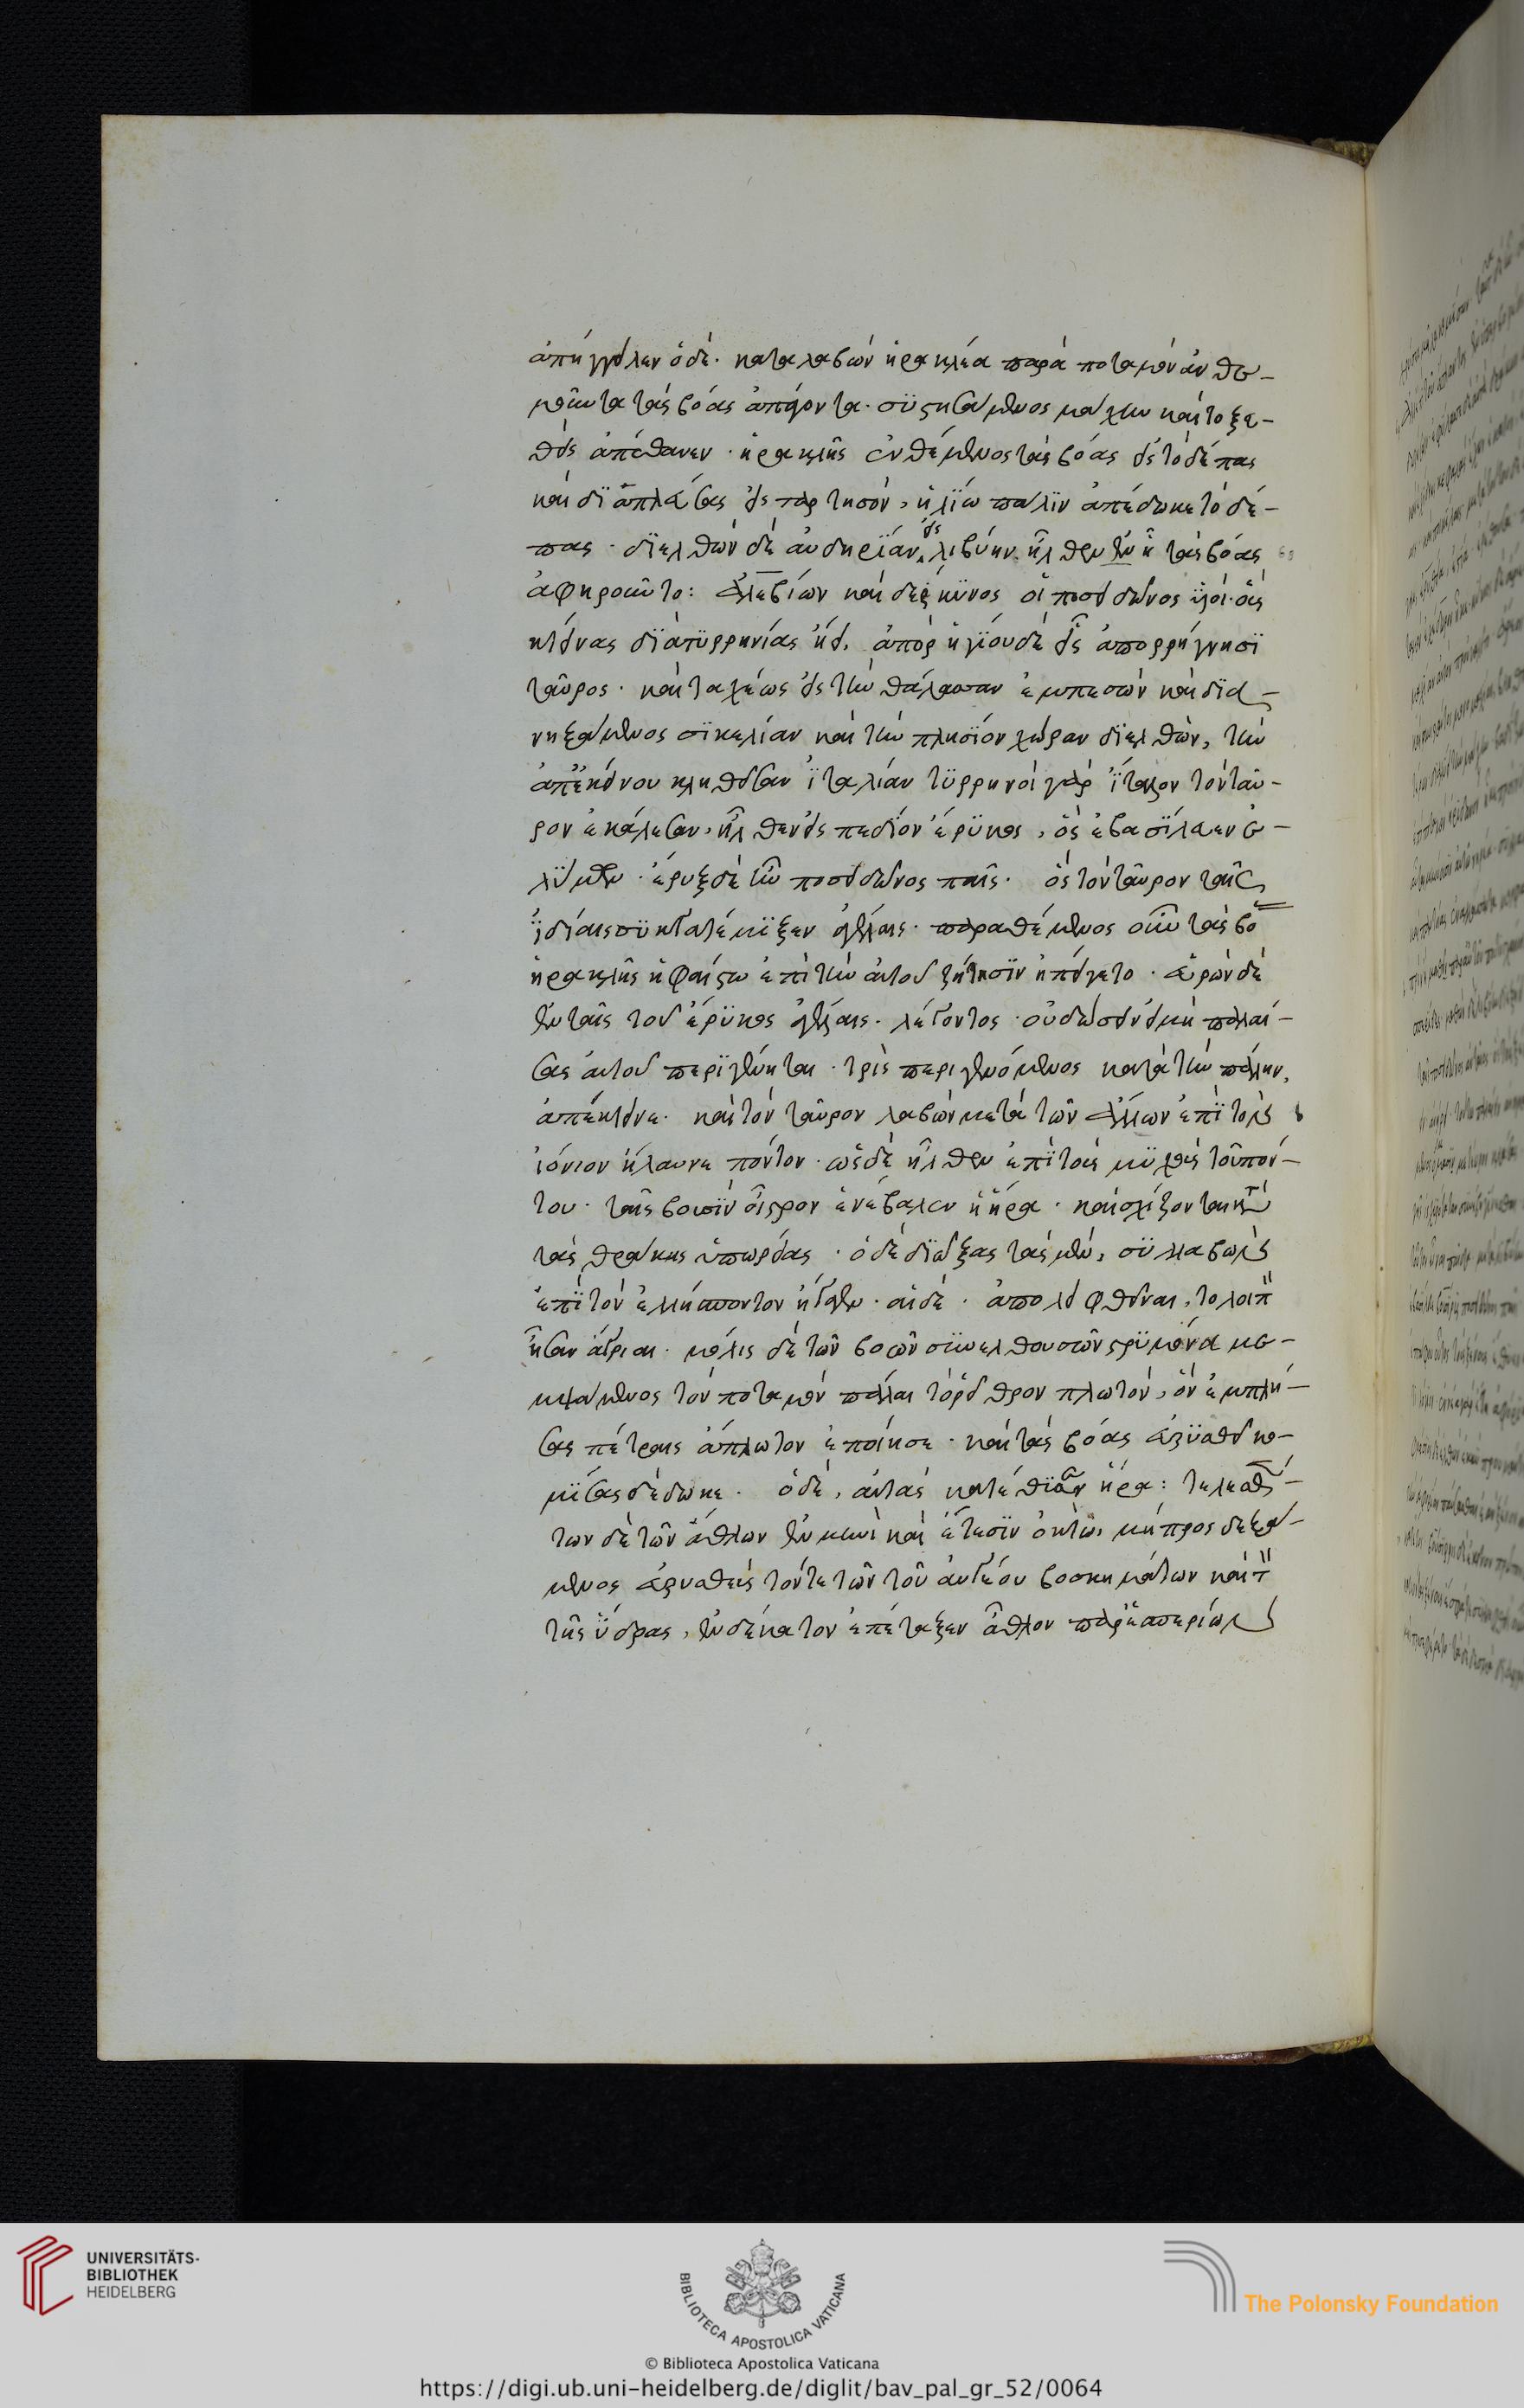 ἀπήγγειλεν ὁ δὲ· καταλαβὼν ἡρακλέα παρὰ ποταμὸν ἀνθε-
μοῦντα τὰς βόας ἀπάγοντα· συστησάμενος μάχην καὶ τοξευ-
θεὶς ἀπέθανεν· ἡρακλῆς ἐνθέμενος τὰς βόας εἰς τὸ δέπας
καὶ διαπλεύσας εἰς ταρτησὸν, ἡλίω πάλιν ἀπέδωκε τὸ δέ-
πας· διελθὼν δὲ αὐδηρίαν εἰς λιβύην ἦλθεν ἐν ἧ τὰς βόας
ἀφηροῦντο: ἀλεβίων καὶ δερκυνος οἱ ποσειδῶνος υἱοί· οὓς
κτείνας διὰ τυρρηνίας ἤει. ἀπὸ ρηγίου δὲ εἷς ἀπορρήγνυσι
ταῦρος· καὶ ταχέως εἰς τὴν θάλασσαν ἐμπεσὼν καὶ δια
νηξάμενος σικελίαν καὶ τὴν πλησίον χώραν διελθὼν, τὴν
ἀπ' ἐκείνου κληθεῖσαν ἰταλίαν τυρρηνοὶ γὰρ ἰταλὸν τὸν ταῦ-
ρον ἐκάλεσαν, ἦλθεν εἰς πεδίον ἔρυκος, ὃς ἐβασίλευεν ἐ-
λύμων· ἔρυξ δὲ ἦν ποσειδῶνος παῖς· ὃς τὸν ταῦρον ταῖς
ἰδίαις συγκατέμιξεν ἀγέλαις· παραθέμενος οὖν τὰς βό
ἡρακλῆς ἡφαίστω ἐπὶ τὴν αὐτοῦ ζήτησιν ἠπείγετο· εὑρὼν δὲ
ἐν ταῖς τοῦ ἔρυκος ἀγέλαις· λέγοντος· οὐ δώσειν εἰ μὴ παλαί-
σας αὐτοῦ περιγένηται· τρὶς περιγενόμενος κατὰ τὴν πάλην,
ἀπέκτεινε· καὶ τὸν ταῦρον λαβὼν μετὰ τῶν ἄλλων ἐπὶ τὸν
ἰόνιον ἤλαυνε πόντον· ὡς δὲ ἦλθεν ἐπὶ τοὺς μυχοὺς τοῦ πόν-
του· ταῖς βουσὶν οἶστρον ἐνέβαλεν ἡ ἥρα· καὶ σχίζονται κατὰ
τὰς θράκης ὑπωρείας· ὁ δὲ διώξας τὰς μὲν, συλλαβὼν
ἐπὶ τὸν ἑλλήσποντον ἤγαγεν· αἱ δὲ· ἀπολειφθεῖσαι, τὸ λοιπ
ἦσαν ἄγριαι· μόλις δὲ τῶν βοῶν συνελθουσῶν στρυμόνα με-
μψάμενος τὸν ποταμὸν πάλαι τὸ ῥεῖθρον πλωτὸν, ὃν ἐμπλή-
σας πέτραις ἄπλωτον ἐποίησε· καὶ τὰς βόας εὐρυσθεῖ κο-
μίσας δέδωκε· ὁ δὲ, αὐτὰς κατέθυσεν ἥρα: τελεσθέν-
των δὲ τῶν ἄθλων ἐν μηνὶ καὶ ἔτεσιν ὀκτὼ, μὴ προσδεξά-
μενος εὐρυσθεὺς τόν τε τῶν τοῦ αὐγέου βοσκημάτων καὶ τ
τῆς ὕδρας, ἑνδέκατον ἐπέταξεν ἆθλον παρ' ἑσπερίων
UNIVERSITÄTS-
BIBLIOTHEK
HEIDELBERG
BIBLIOTECA APOSTOLICA VATICANA
The Polonsky Foundation
© Biblioteca Apostolica Vaticana
https://digi.ub.uni-heidelberg.de/diglit/bav_pal_gr_52/0064